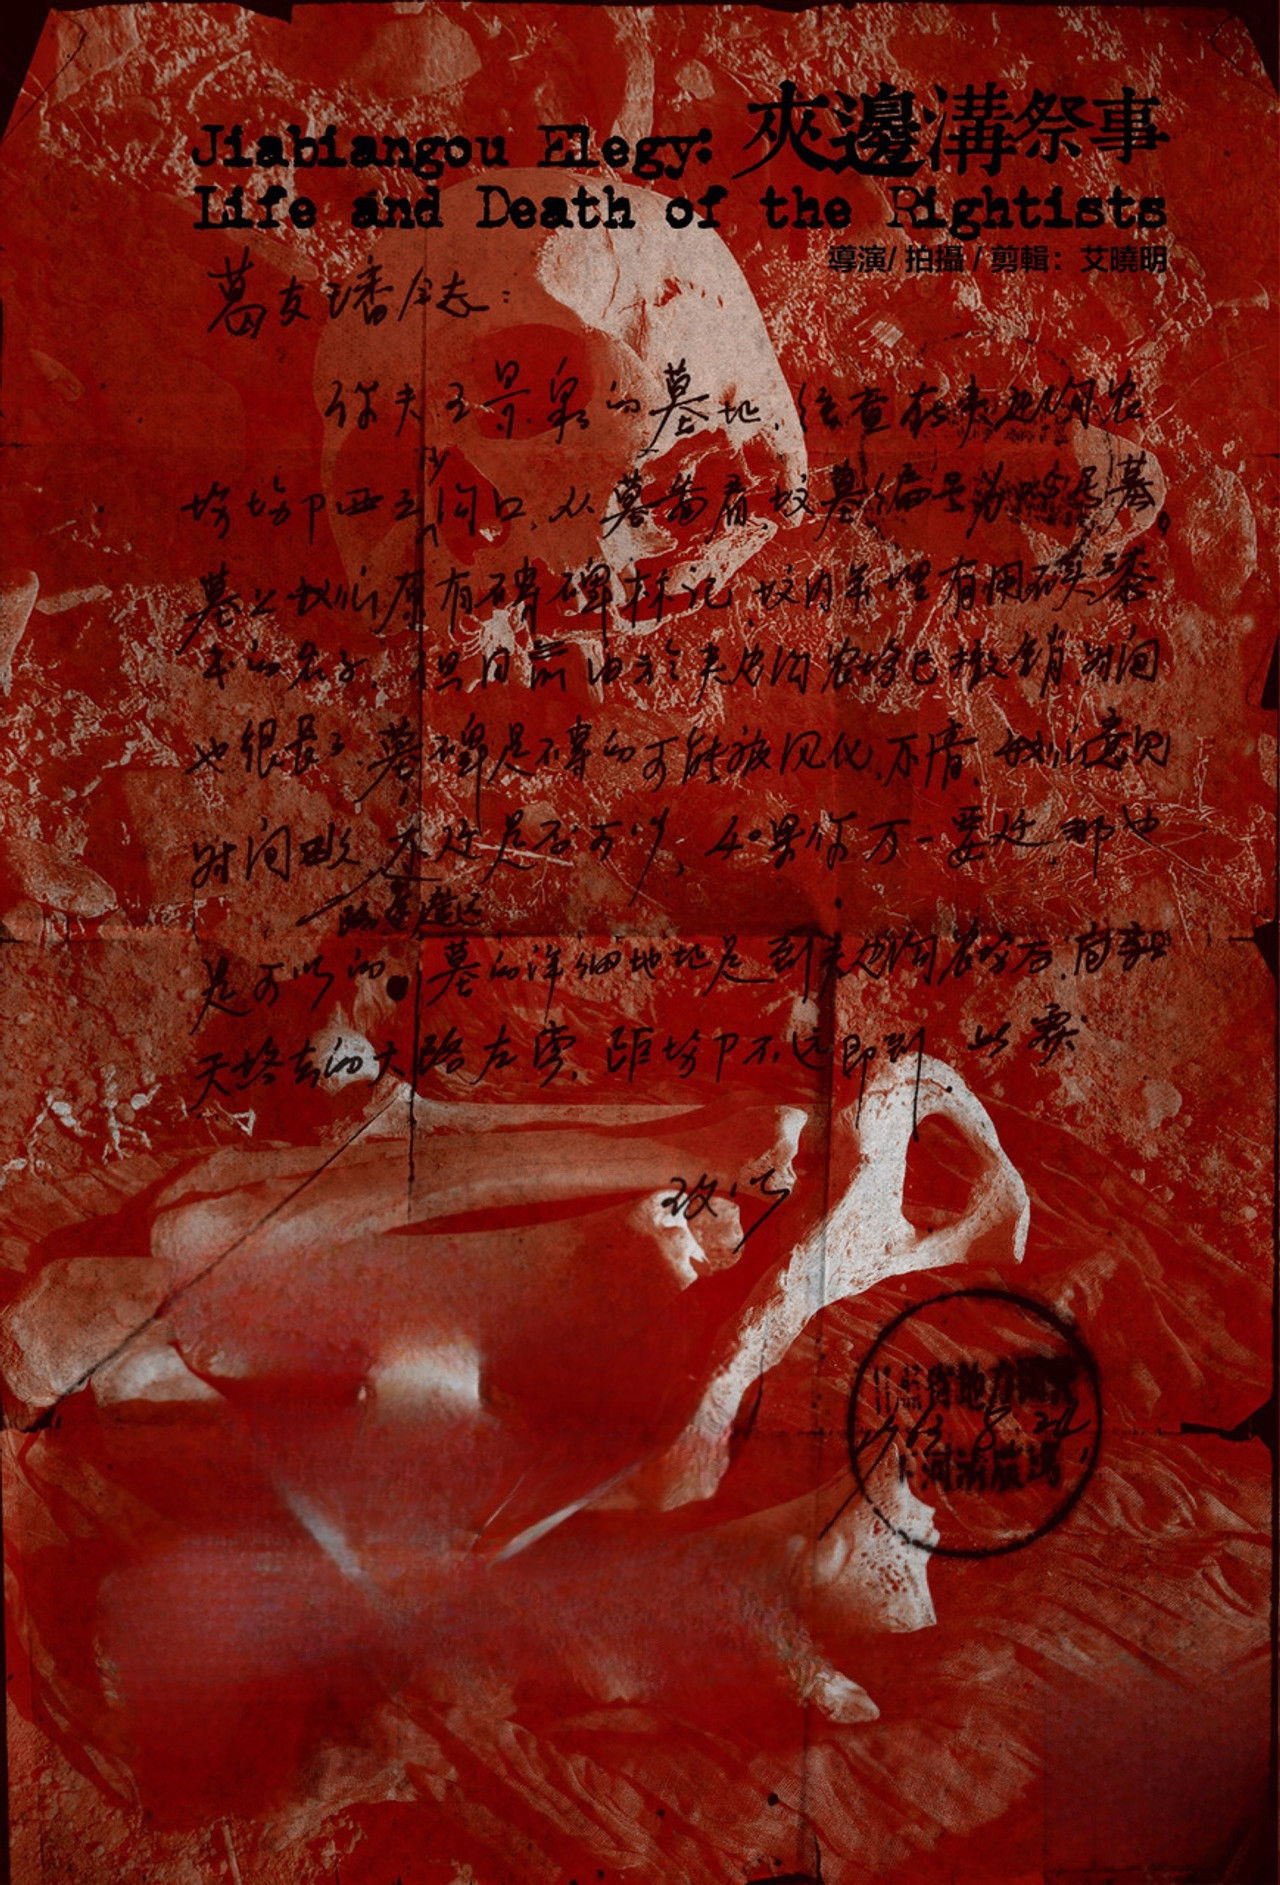 Jiabiangou Elegy: 夾邊溝祭事
Life and Death of the Rightists
導演/ 拍攝 / 剪輯：艾曉明
葛友璠同志：
你夫王景泉的墓地，经查在夹边沟农
场场部西 沟口，从墓 看，坟墓编号为 号墓。
墓上我们原有砖碑标记，坟内亦埋有用碳素
的名字，但目前由于夹边沟农场已撤销，时间
也很长了，墓碑是砖的可能被风化，不清，我们意见
时间 不迁是否可以，如果你万一要迁，那也
是可以的。墓的详细地址是到夹边沟农场后，
去的大路左旁，距场部不远即到。此复
致以
63 8 24